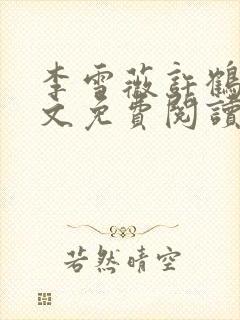 李雪薇許鶴
文免費閱讀
若然晴空